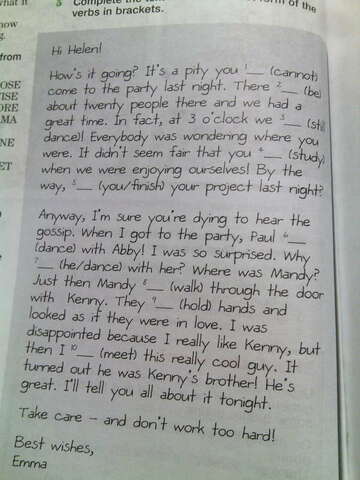 5 Complete the
form of the
verbs in brackets.
Hi Helen!
How's it going? It's a pity you 1__ (cannot)
come to the party last night. There 2__ (be)
about twenty people there and we had a
great time. In fact, at 3 o'clock we 3__ (still
dance)! Everybody was wondering where you
were. It didn't seem fair that you 4__ (study)
when we were enjoying ourselves! By the
way, 5__ (you/finish) your project last night?
Anyway, I'm sure you're dying to hear the
gossip. When I got to the party, Paul 6__
(dance) with Abby! I was so surprised. Why
7__ (he/dance) with her? Where was Mandy?
Just then Mandy 8__ (walk) through the door
with Kenny. They 9__ (hold) hands and
looked as if they were in love. I was
disappointed because I really like Kenny, but
then I 10__ (meet) this really cool guy. It
turned out he was Kenny's brother! He's
great. I'll tell you all about it tonight.
Take care – and don't work too hard!
Best wishes,
Emma